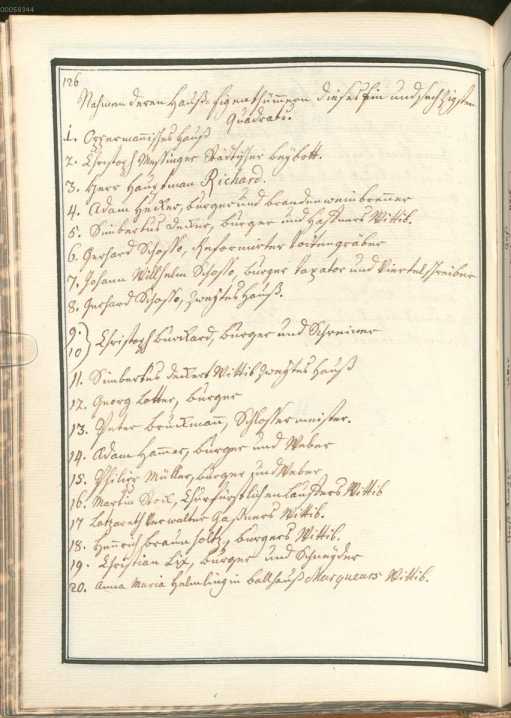 00059344
126
Nahmen deren Hauß-Eigenthümmern dieses Ein und sechzigsten
Quadrats.
1. Oppermannisches Hauß
2. Christoph Messinger Städtischer
3. Herr Hauptman Richard.
4. Adam Hecker, burger und brandenweinbrenner
5. Simbertus Decker, burger und Haffners Wittib.
6. Gerhard Schosso, Reformirter Todtengräber
7. Johann Willhelm Schosso, burger Taxator und Viertelschreiber
8. Gerhard Schosso, Zweytes Hauß.
9.
10) Christoph burckard, burger und Schreiner
11. Simbertus deckers Wittib Zweytes Hauß
12. Georg Lotter, burger
13. Peter bruckmann, Schlossermeister.
14. Adam Hammer, burger und Weber
15. Philipp Müller, burger und Weber
16. Martin Churfürstlichen Wittib
17 Lazareth Verwalter Gaßners Wittib.
18. Henrich braunholtz, burgers Wittib.
19. Christian Lix, burger und Schneyder
20. Anna Maria Helmlingin ballhauß Marqueurs Wittib.